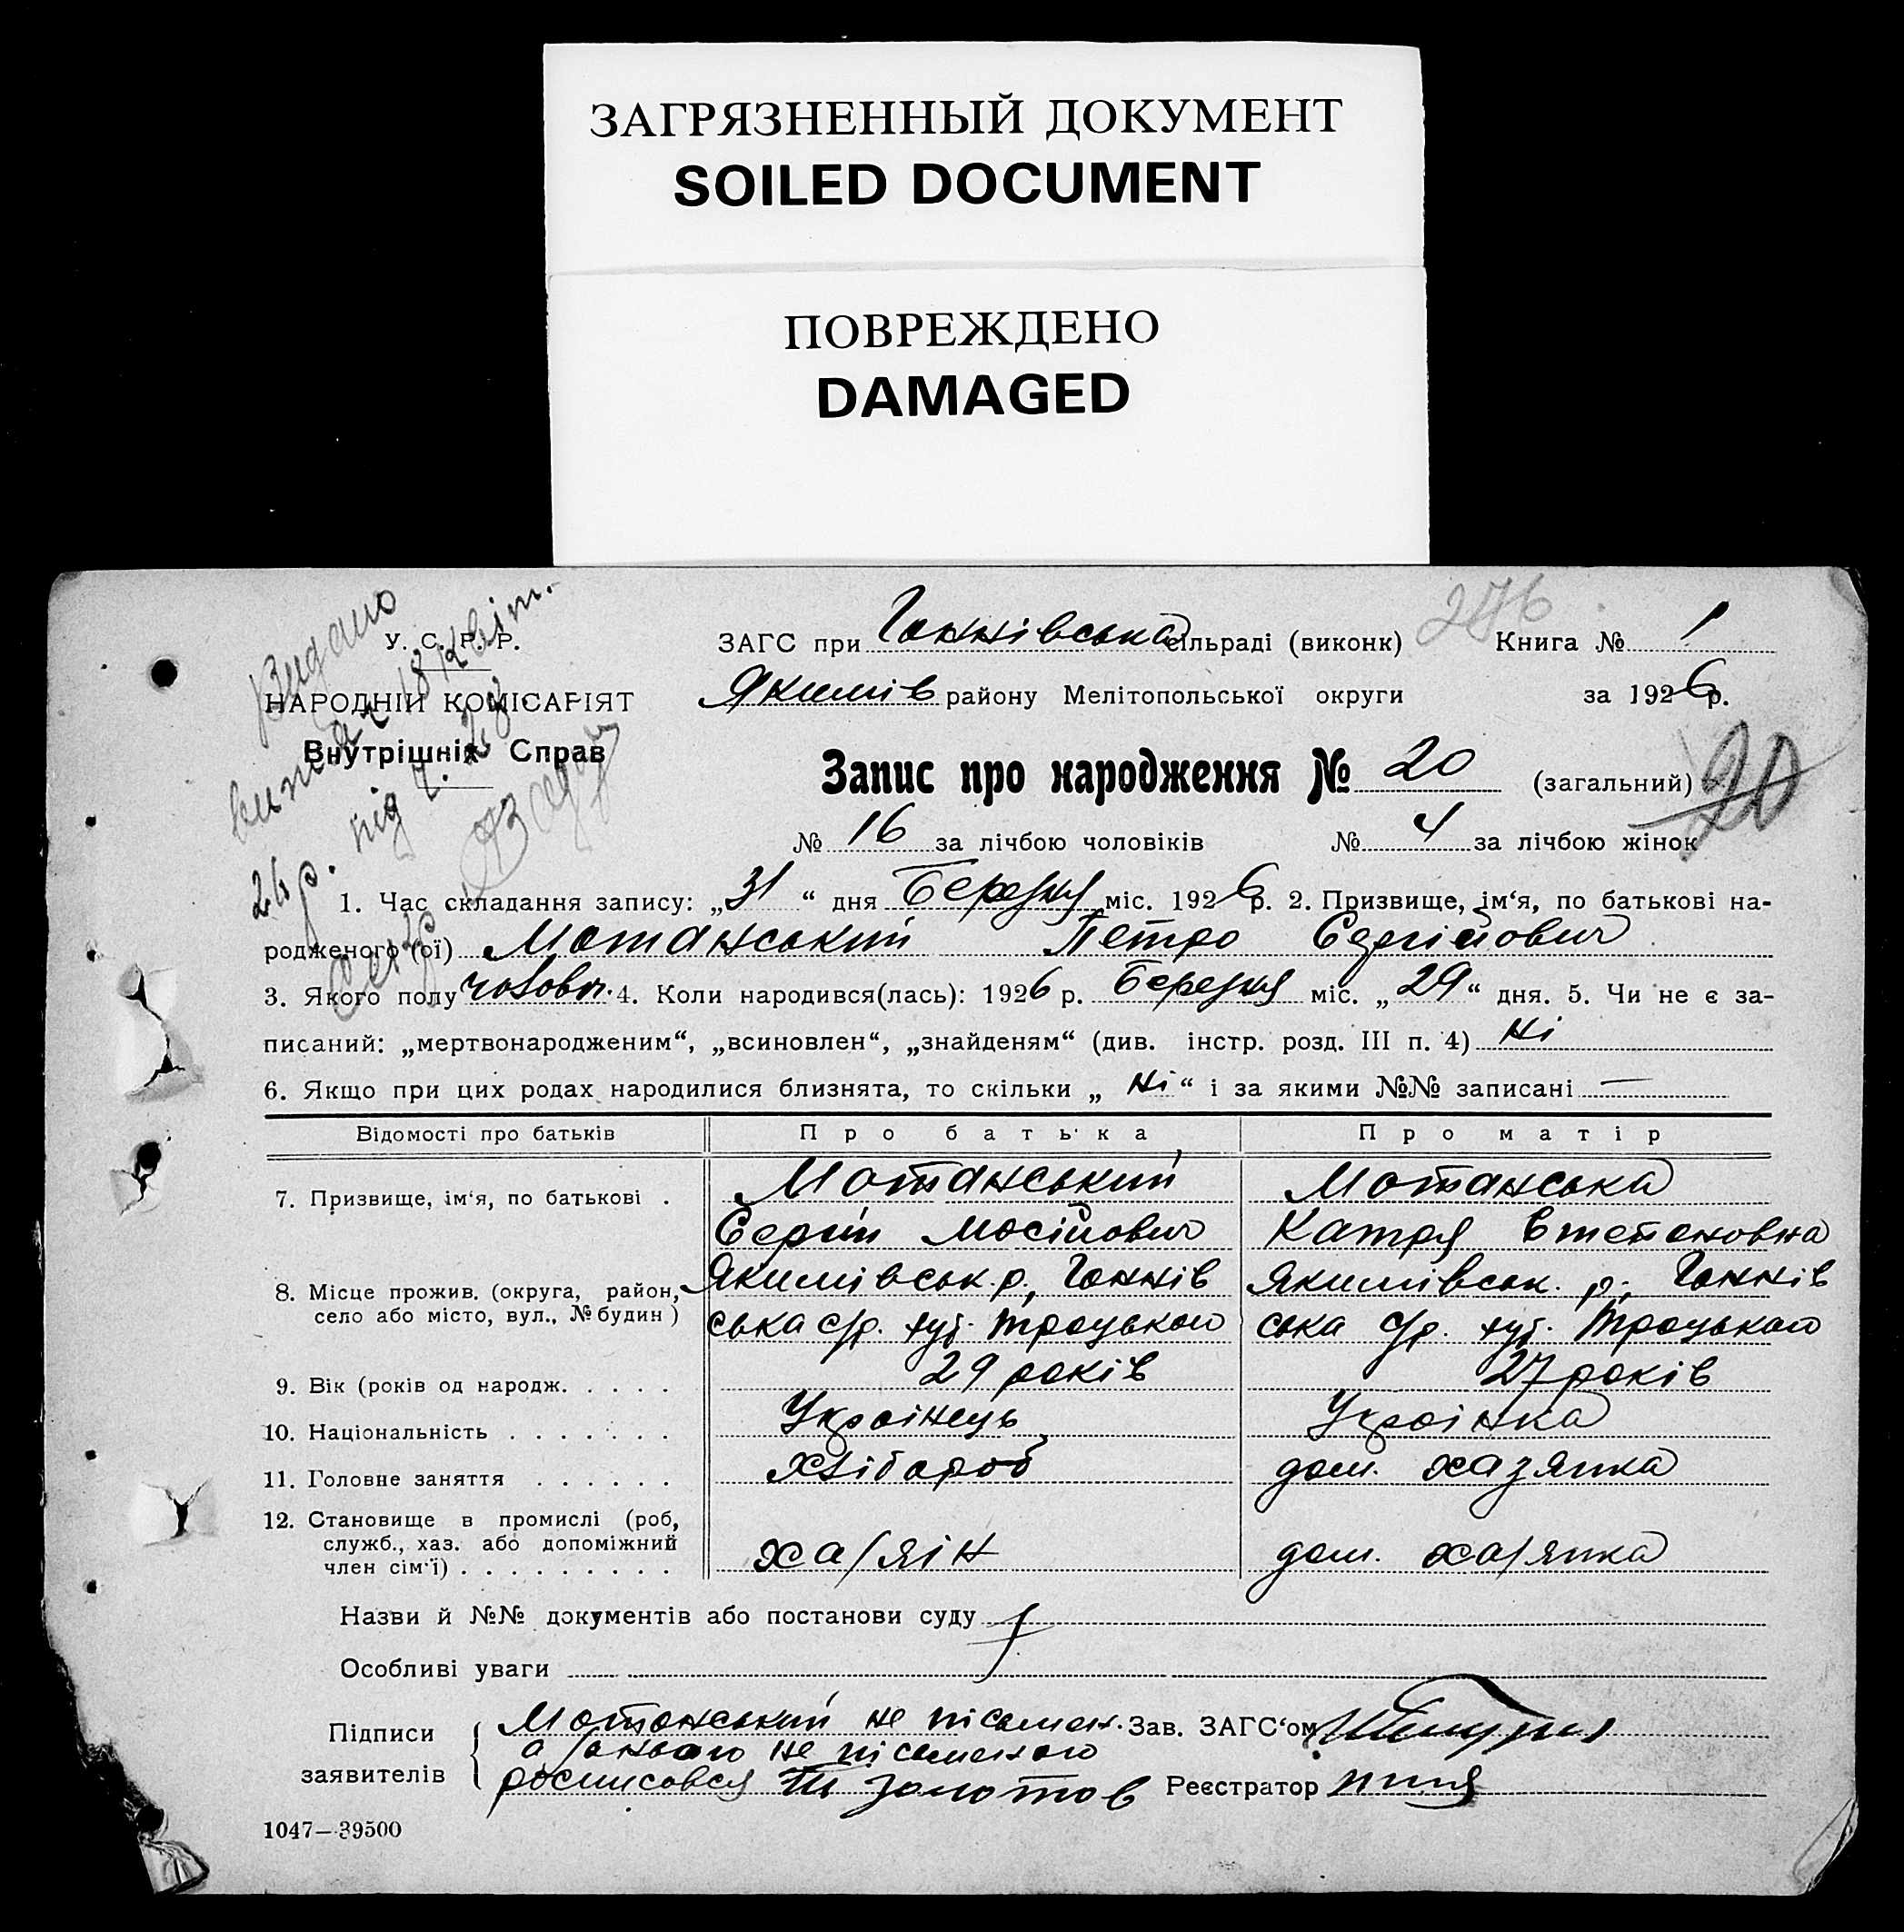 ЗАГРЯЗНЕННЫЙ ДОКУМЕНТ
SOILED DOCUMENT
ПОВРЕЖДЕНО
DAMAGED
Видано
витяг 18 квіт.
26 р. під ч. 28.
276
У. С. Р. Р.
НАРОДНІЙ КОМІСАРІЯТ
Внутрішніх Справ
ЗАГС при Ганнівська сільраді (виконк) Книга № 1
Якимів району Мелітопольської округи за 1926 р.
Запис про народження № 20 (загальний) 20
№ 16 за лічбою чоловіків № 4 за лічбою жінок
1. Час складання запису: „31“ дня Березня міс. 1926 р. 2. Призвище, ім‘я, по батькові на-
родженого (ої) Мотанський Петро Сергійович
3. Якого полу чоловіч. 4. Коли народився(лась): 1926 р. Березня міс. „29“ дня. 5. Чи не є за-
писаний: „мертвонародженим“, „всиновлен“, „знайденям“ (див. інстр. розд. III п. 4) Ні
6. Якщо при цих родах народилися близнята, то скільки „Ні“ і за якими №№ записані —
Відомості про батьків Про батька Про матір
7. Призвище, ім‘я, по батькові . Мотанський Мотанська
Сергій Мосійович Катря Степановна
8. Місце прожив. (округа, район, Якимівськ. р., Ганнів Якимівськ. р., Ганнів
село або місто, вул., № будин) ська с/р. хут. Троцького ська с/р. хут. Троцького
9. Вік (років од народж. . . . . 29 років 27 років
10. Національність . . . . . . . Українець Українка
11. Головне заняття . . . . . . Хлібороб дом. хазяйка
12. Становище в промислі (роб,
служб., хаз. або допоміжний
член сім‘ї) . . . . . . . . . хазяін дом. хазяйка
Назви й №№ документів або постанови суду
Особливі уваги
Підписи Мотанський не пісьмен. Зав. ЗАГС‘ом
а за нього не пісьменого
заявителів росписовся Золотов Реєстратор
1047—39500